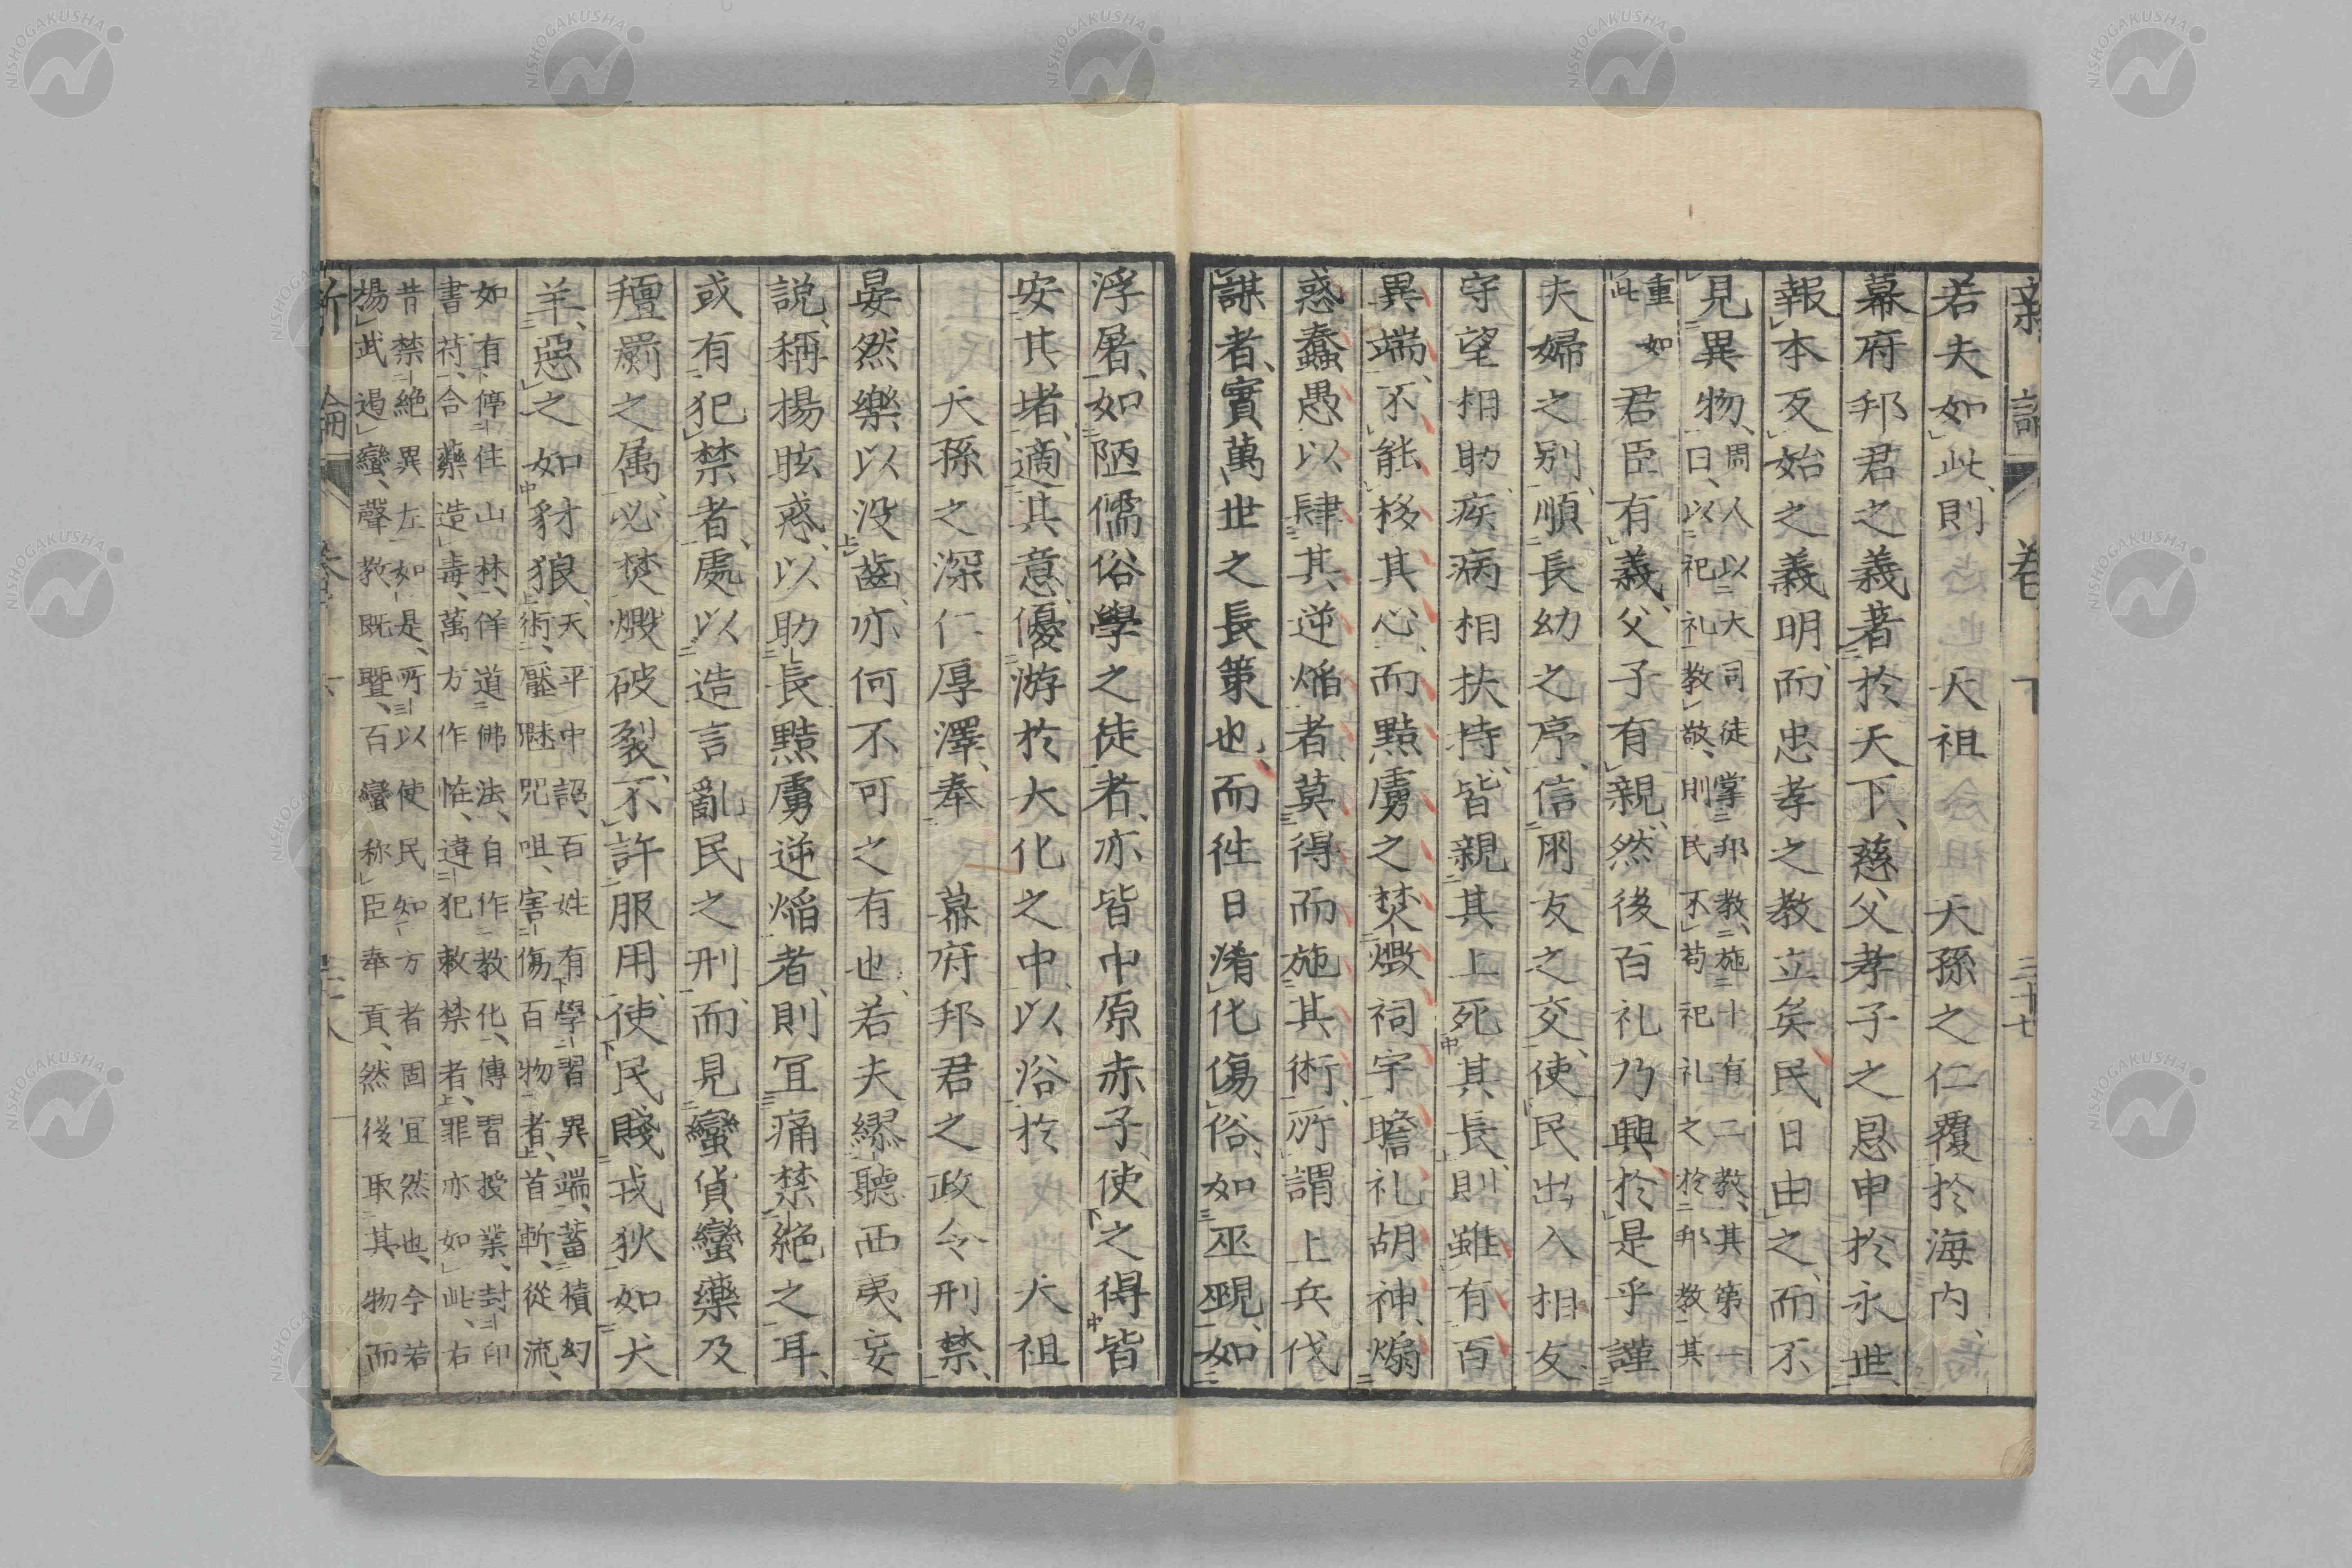 若夫如此則天祖天孫之仁覆於海内
幕府邦君之義著於天下慈父孝子之恩申於永世
報本反始之義明而忠孝之教立矣民日由之而不
見異物周人以大司徒掌邦教施十有二教其第一
曰以祀礼教敬則民不苟祀礼之於邦教其
重如
此
君臣有義父子有親然後百礼乃興於是乎謹
夫婦之別順長幼之序信朋友之交使民出入相友
守望相助疾病相扶持皆親其上死其長則雖有百
異端不能移其心而黠虜之焚燬祠宇瞻礼胡神煽
惑蠢愚以肆其逆焰者莫得而施其術所謂上兵伐
謀者實萬世之長策也而往日淆化傷俗如巫覡如
浮屠如陋儒俗學之徒者亦皆中原赤子使之得皆
安其堵適其意優游於大化之中以浴於天祖
天孫之深仁厚澤奉幕府邦君之政令刑禁
晏然樂以没齒亦何不可之有也若夫繆聽西夷妄
説稱揚眩惑以助長黠虜逆焰者則冝痛禁絶之耳
或有犯禁者處以造言亂民之刑而見蠻貨蠻藥及
羶罽之属必焚燬破裂不許服用使民賤戎狄如犬
羊惡之如豺狼天平中詔百姓有學習異端蓄積幻
術壓魅咒咀害傷百物者首斬從流
如有停住山林佯道佛法自作教化傳習授業封印
書符合藥造毒萬方作恠違犯敕禁者罪亦如此右
昔禁絶異左如是所以使民知方者固冝然也今若
揚武遏蠻聲教既曁百蠻称臣奉貢然後取其物而
新論
NISHOGAKUSHA